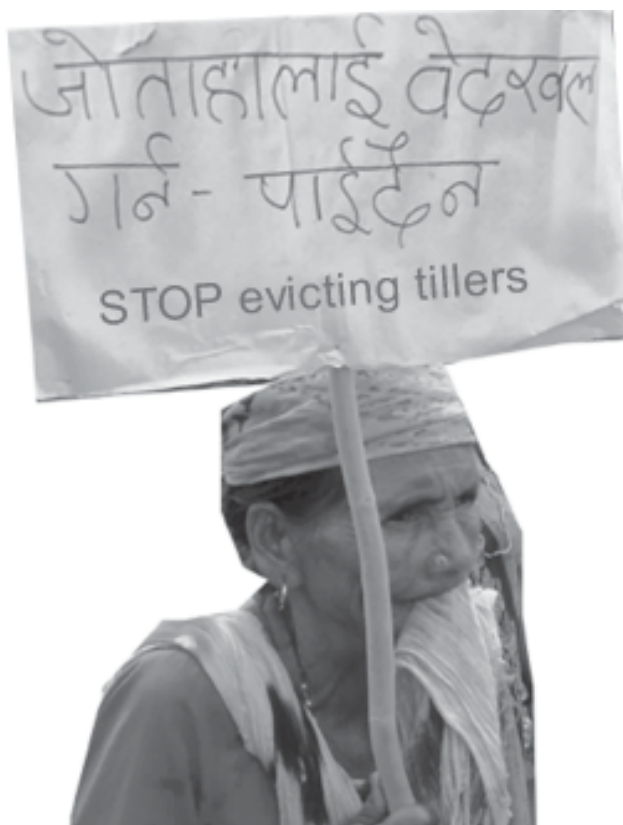 जोताहालाई वेदखल
गर्न - पाईदैन
STOP evicting tillers